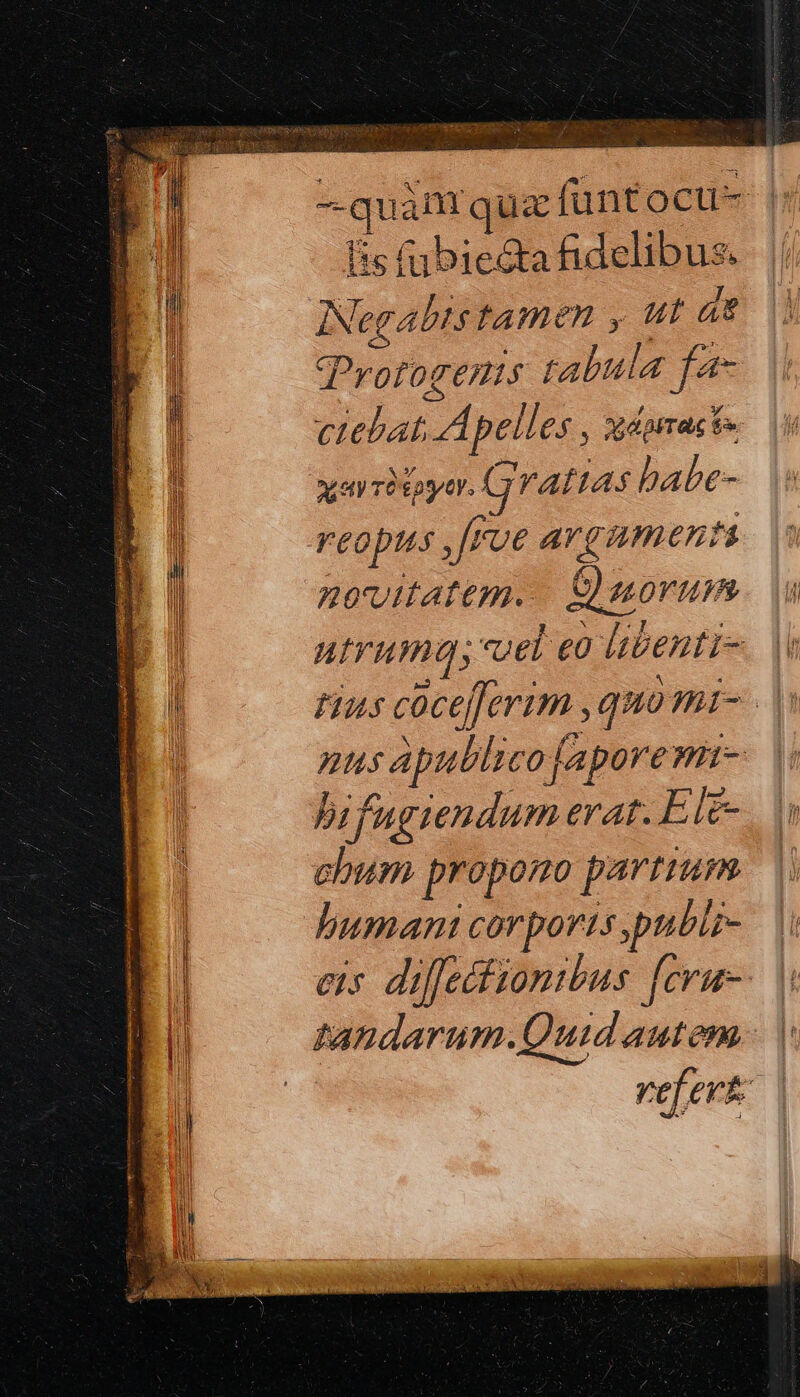 -quàm quæ ſunt ocu-
lis ſubiecta fidelibus.
Negabis tamen, ut de
Protogenis tabula fa-
ciebat Apelles, χάριτας
ἔργον. Gratias habe-
reopus, ſive argumenti
novitatem. Quorum
utrumq; vel eò libenti-
tius cōceſſerim, quò mi-
nus àpublico ſapore mi-
hi fugiendum erat. Ele-
chum propono partium
humani corporis, publi-
cis diſſectionibus ſcru-
tandarum. Quid autem
refert